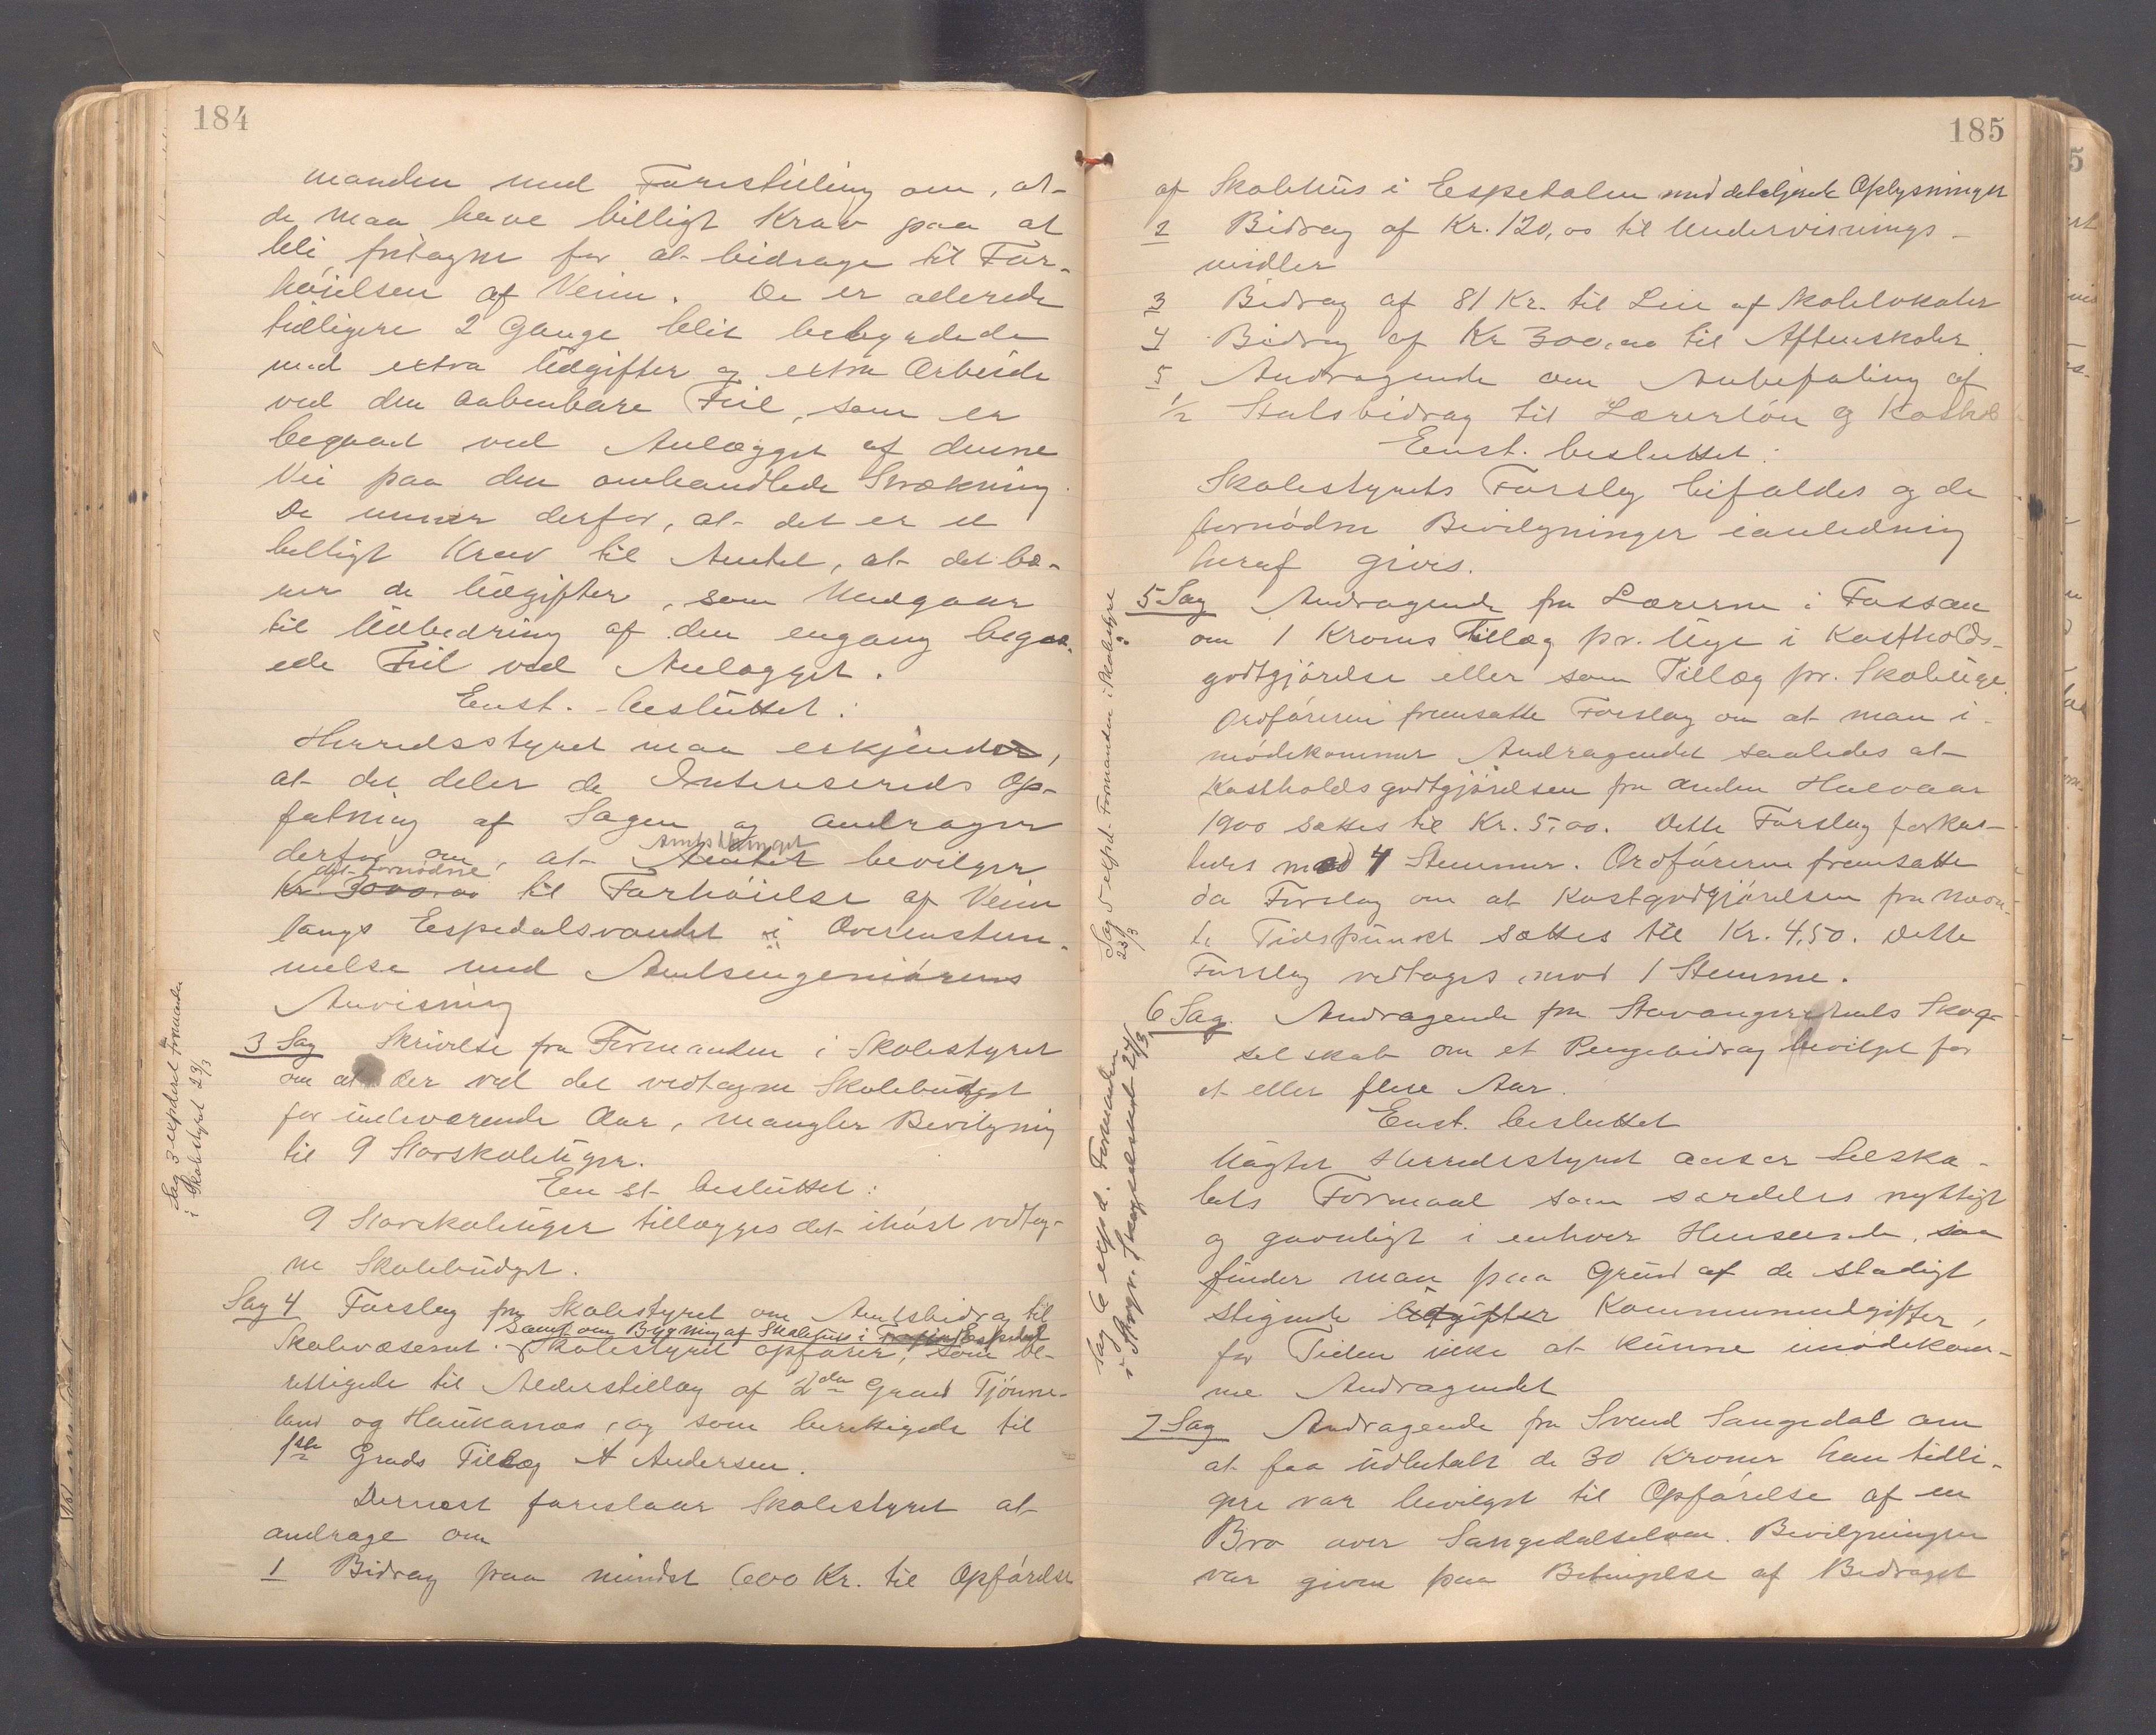 184
manden med Forestilling om, at
de maa have billigt Krav paa at
bli fritagne for at bidrage til For-
høielsen af Veien. De er allerede
tidligere 2 Gange blit bebyrdede
med extra Udgifter og extra Arbeide
ved den aabenbare Feil, som er
begaaet ved Anlægget af denne
Vei paa den omhandlede Strækning.
De mener derfor, at det er et
billigt Krav til Amtet, at det bæ-
rer de Udgifter, som medgaar
til Udbedring af den engang begaa-
ede Feil ved Anlægget.
Enst. besluttet:
Herredsstyret maa erkjende,
at det deler de Interesseredes Op-
fatning af Sagen og andrager
derfor om, at Amtet Amtsthinget bevilger
Kr. 3000.00 det fornødne til Forhøielse af Veien
langs Espedalsvandet i Overenstem-
melse med Amtsingeniørens
Anvisning
3 Sag Skrivelse fra Formanden i Skolestyret
om at der ved det vedtagne Skolebudget
for indeværende Aar, mangler Bevilgning
til 9 Storskoleuger.
Enst besluttet:
9 Storskoleuger tillægges det ihøst vedtag-
ne Skolebudget.
Sag 4 Forslag fra Skolestyret om Amtsbidrag til
samt om Bygning af Skolehus i Espedal
Skolevæsenet. Skolestyret opfører, som be-
rettigede til Alderstillæg af 2den Grad Tjønne-
land og Haukanæs, og som berettigede til
1ste Grads Tillæg A Andersen.
Dernæst foreslaar Skolestyret at
andrage om
1 Bidrag paa mindst 600 Kr. til Opførelse
Sag 3 expderet Formanden
i Skolestyret 23/3
185
af Skolehus i Espedalen med detaljerede Oplysninger
2 Bidrag af Kr. 120,00 til Undervisnings-
midler
3 Bidrag af 81 Kr. til Leie af Skolelokaler
4 Bidrag af Kr 300,00 til Aftenskoler
5 Andragende om Anbefaling af
1/2 Statsbidrag til Lærerløn og Kosthold
Enst. besluttet:
Skolestyrets Forslag bifaldes og de
fornødne Bevilgninger ianledning
heraf gives.
5 Sag Andragende fra Lærerne i Fossan
om 1 Krones Tillæg pr. Uge i Kostholds-
godtgjørelse eller som Tillæg pr. Skoleuge.
Ordføreren fremsatte Forslag om at man i-
mødekommer Andragendet saaledes at
Kostholdsgodtgjørelsen fra anden Halvaar
1900 sættes til Kr. 5,00. Dette Forslag forkas-
tedes med 4 Stemmer. Ordføreren fremsatte
da Forslag om at Kostgodtgjørelsen fra nævn-
te Tidspunkt sættes til Kr. 4,50. Dette
Forslag vedtages mod 1 Stemme.
6 Sag. Andragende fra Stavangerens Skog-
selskab om et Pengebidrag bevilget for
et eller flere Aar.
Enst. besluttet
Uagtet Herredsstyret anser Selska-
bets Formaal som særdeles nyttigt
og gavnligt i enhver Henseende, saa
finder man paa Grund af de stadigt
stigende Udgifter Kommuneudgifter,
for Tiden ikke at kunne imødekom-
me Andragendet
7 Sag Andragende fra Svend Sangedal om
at faa udbetalt de 30 Kroner han tidli-
gere var bevilget til Opførelse af en
Bro over Sangedalselven. Bevilgningen
var given paa Betingelse af Bidraget
Sag 5 expd. Formanden i Skolestyre
23/3
Sag 6 expd. Formanden
i Stvgr. Skogselskab 24/3